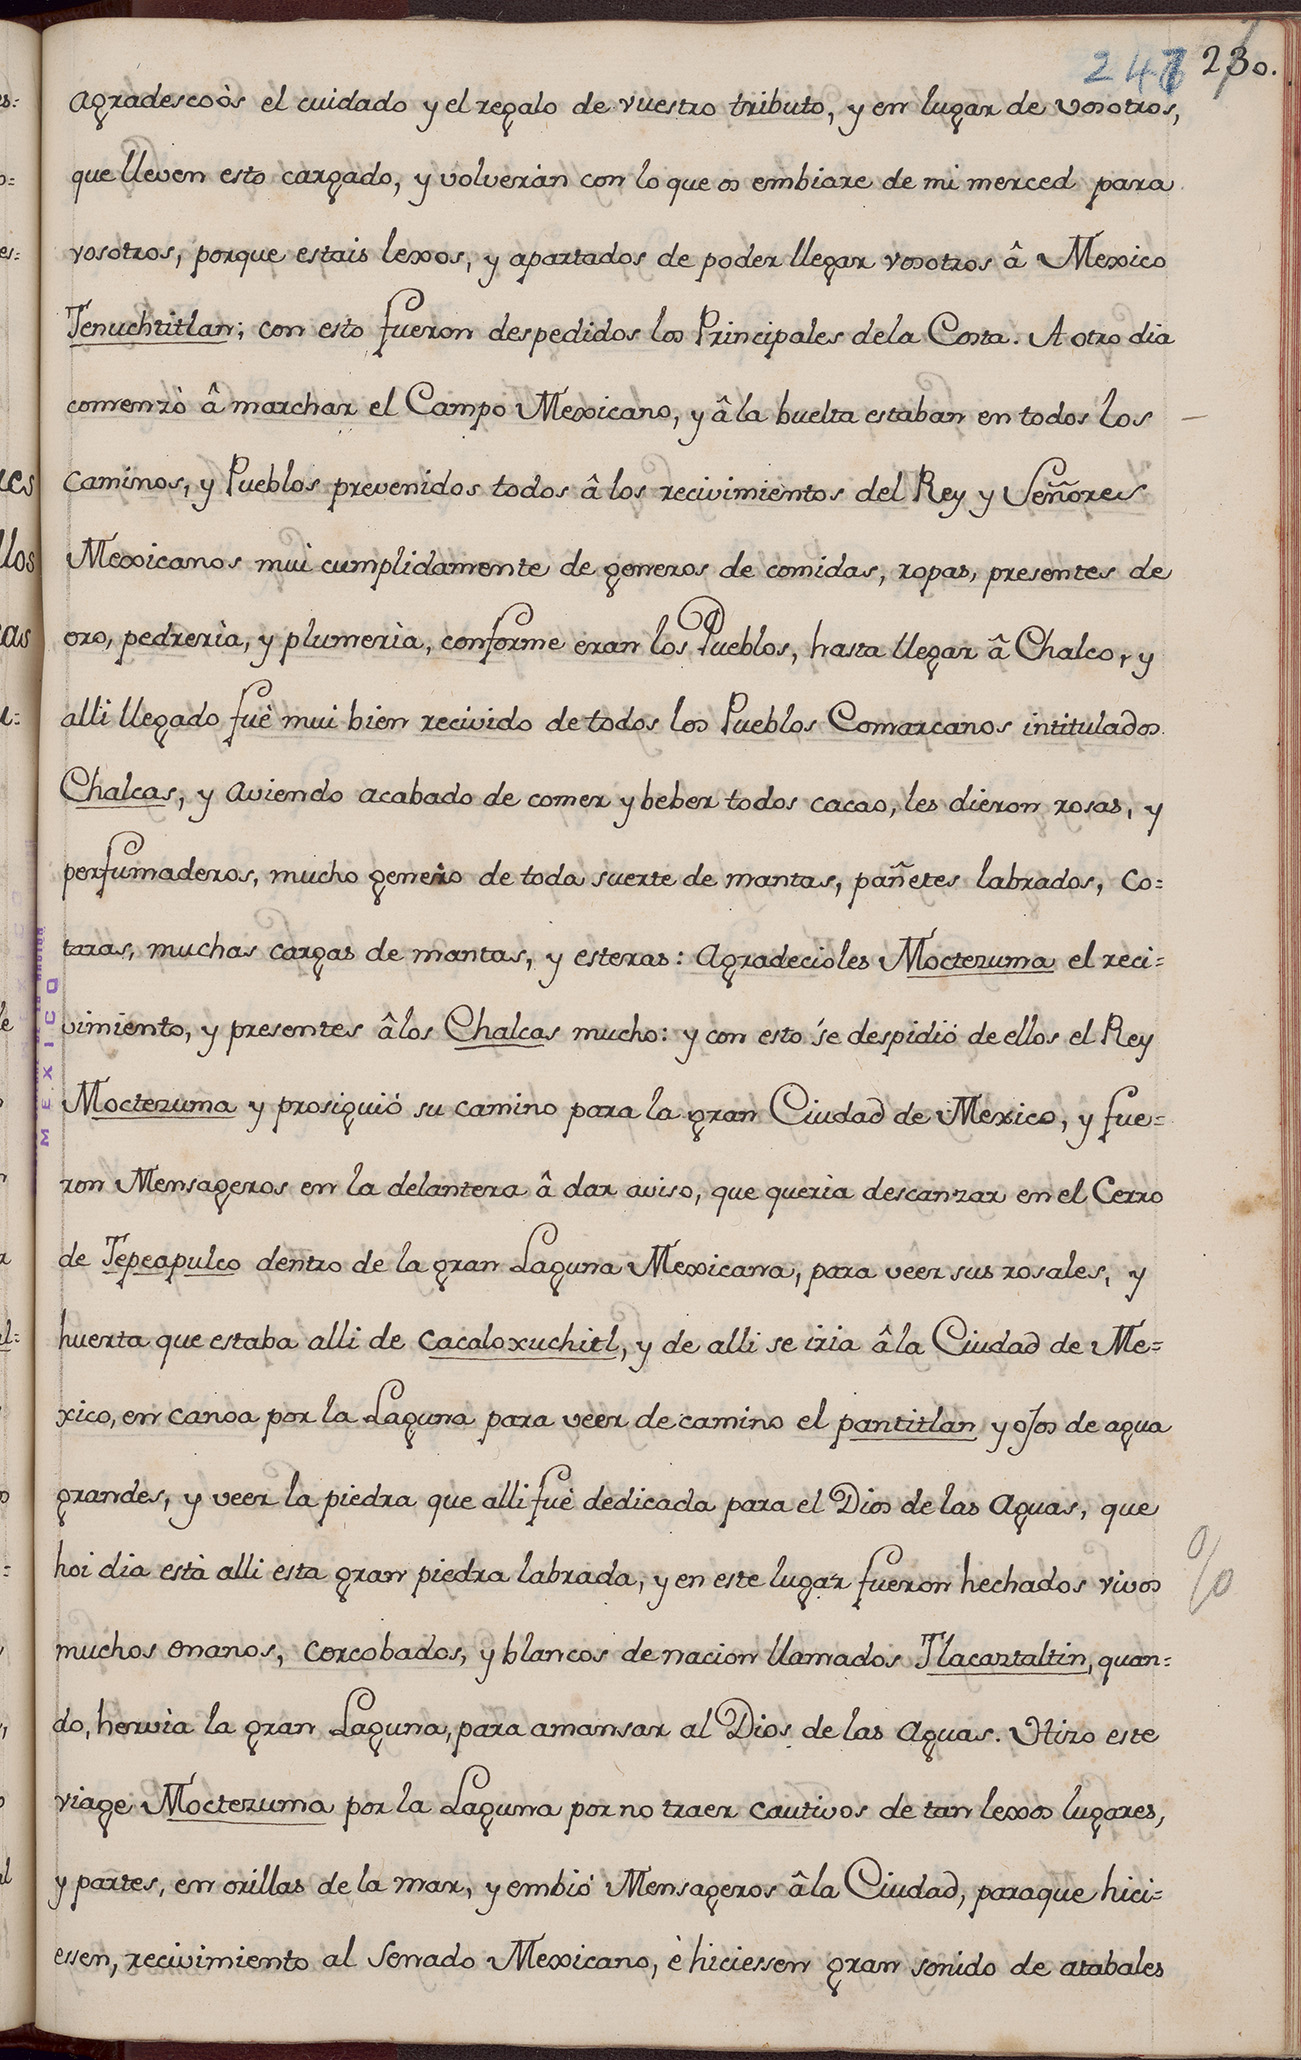 247 230.
agradescoòs el cuidado y el regalo de vuestro tributo, y en lugar de vosotros,
que lleven esto cargado, y volveràn con lo que os embiare de mi merced para
vosotros, porque estais lexos, y apartados de poder llegar vosotros â Mexico
Tenuchtitlan; con esto fueron despedidos los Principales dela Costa. A otro dia
comenzò â marchar el Campo Mexicano, y â la buelta estaban en todos los
caminos, y Pueblos prevenidos todos â los recivimientos del Rey y Señores
Mexicanos mui cumplidamente de generos de comidas, ropas, presentes de
oro, pedrerìa, y plumerìa, conforme eran los Pueblos, hasta llegar â Chalco, y
alli llegado fuè mui bien recivido de todos los Pueblos Comarcanos intitulados
Chalcas, y aviendo acabado de comer y beber todos cacao, les dieron rosas, y
perfumaderos, mucho genero de toda suerte de mantas, pañetes labrados, co=
taras, muchas cargas de mantas, y esteras: Agradecioles Moctezuma el reci=
vimiento, y presentes âlos Chalcas mucho: y con esto se despidió de ellos el Rey
Moctezuma y prosiguió su camino para la gran Ciudad de Mexico, y fue=
ron Mensageros en la delantera â dar aviso, que querìa descanzar en el Cerro
de Tepeapulco dentro de la gran Laguna Mexicana, para veer sus rosales, y
huerta que estaba alli de cacaloxuchitl, y de alli se iria âla Ciudad de Me=
xico, en canoa por la Laguna para veer de camino el pantitlan y ojos de agua
grandes, y veer la piedra que alli fuè dedicada para el Dios de las Aguas, que
hoi dia està alli esta gran piedra labrada, y en este lugar fueron hechados vivos
muchos enanos, corcobados, y blancos de nacion llamados Tlacaztaltin, quan=
do, hervia la gran Laguna, para amansar al Dios de las Aguas. Hizo este
viage Moctezuma por la Laguna por no traer cautivos de tan lexos lugares,
y partes, en orillas de la mar, y embió Mensageros âla Ciudad, paraque hici=
essen, recivimiento al Senado Mexicano, è hiciessen gran sonido de atabales
MEXICO